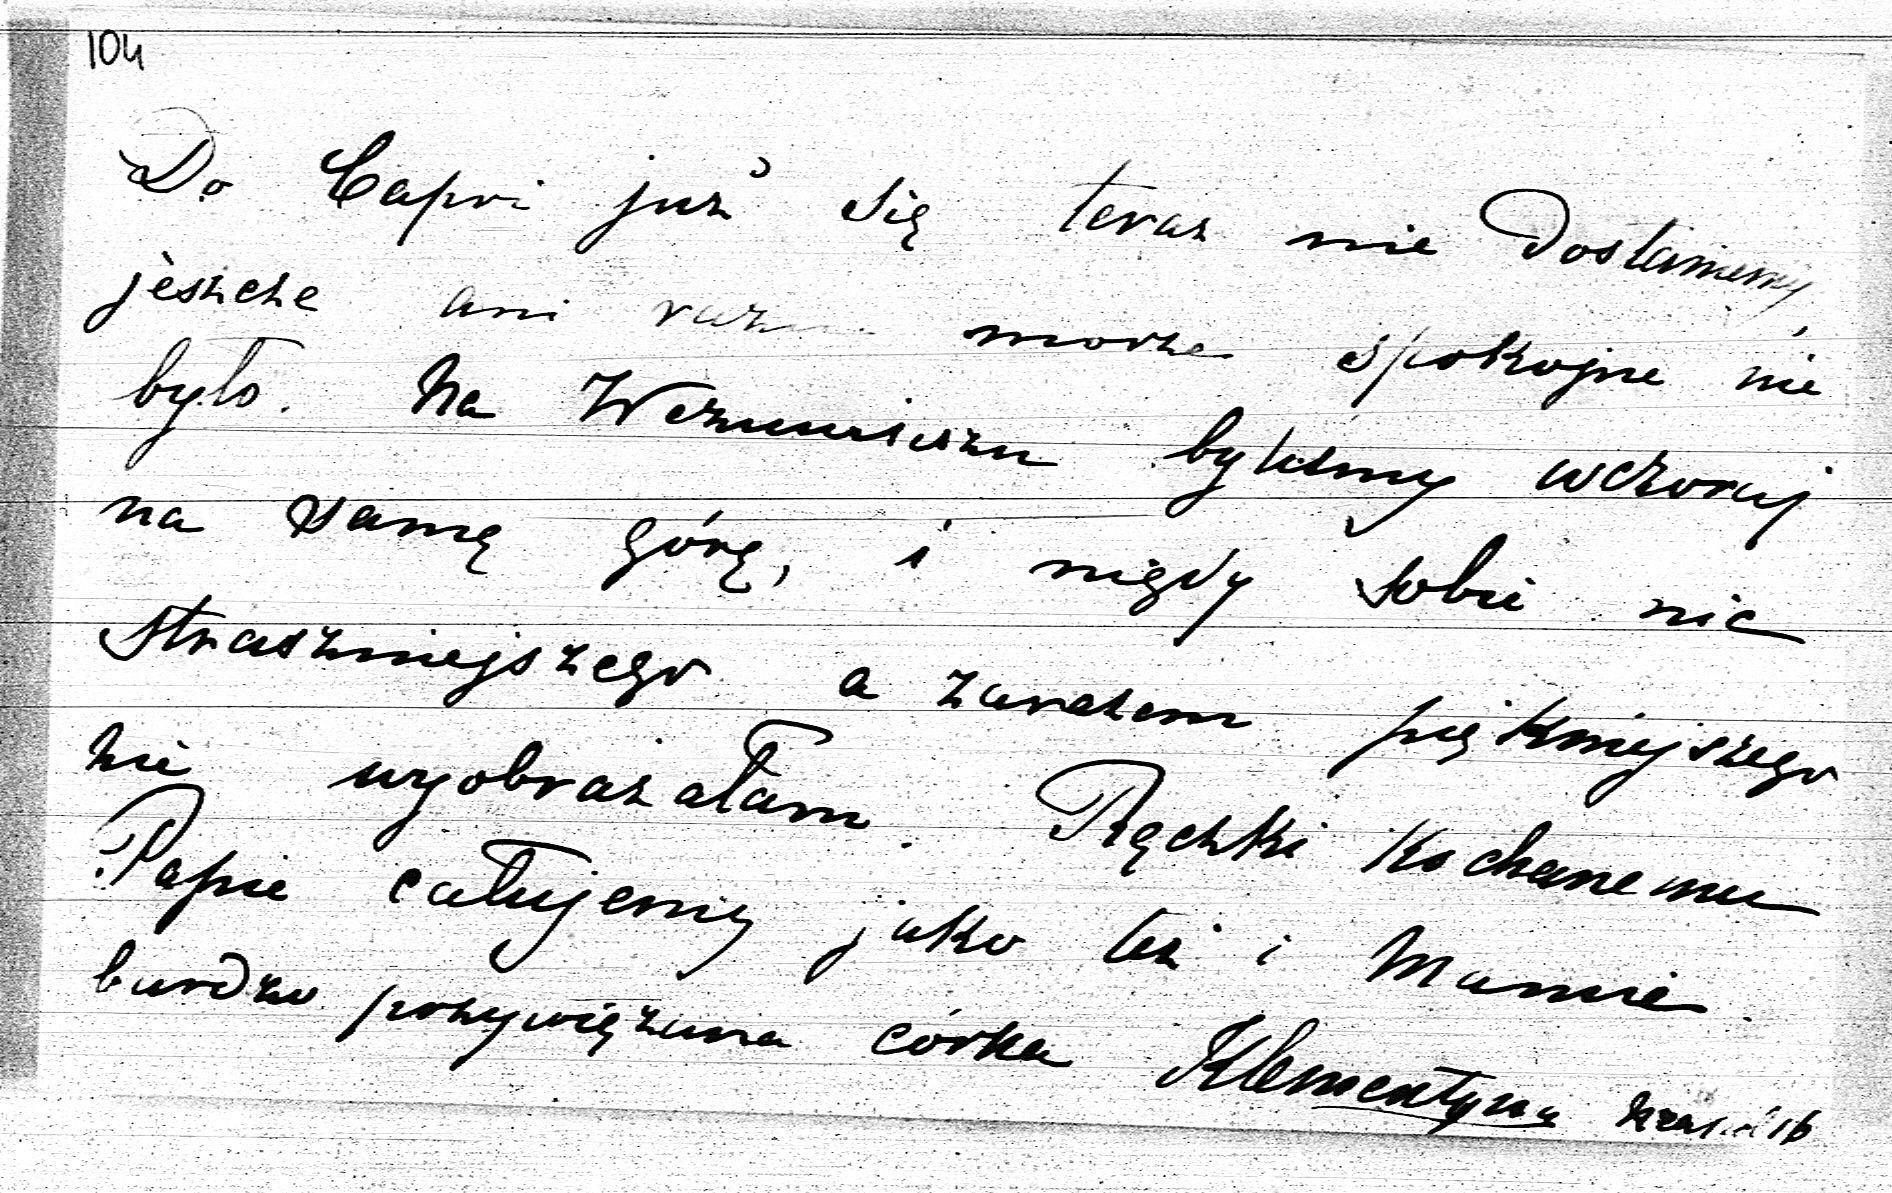 104
Do Capri już się teraz nie dostaniemy,
jeszcze ani razu morze spokojne nie
było. Na Wezuwiuszu byliśmy wczoraj
na samę górę, i nigdy sobie nic
straszniejszego a zarazem piękniejszego
nie wyobrażałam. Rączki kochanemu
Papie całujemy jako też i Mamie.
bardzo przywiązana córka Klementyna